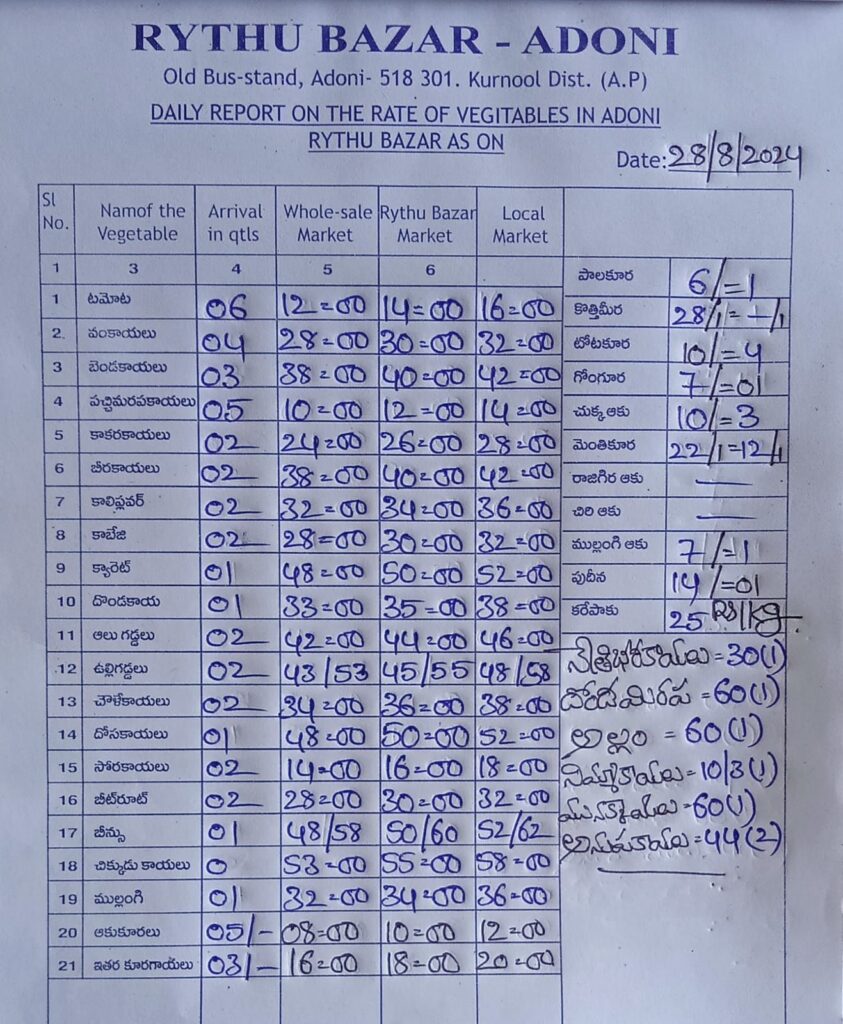 RYTHU BAZAR - ADONI
Old Bus-stand, Adoni- 518 301. Kurnool Dist. (A.P)
DAILY REPORT ON THE RATE OF VEGITABLES IN ADONI
RYTHU BAZAR AS ON
Date: 28/8/2024
Sl No. Namof the Vegetable Arrival in qtls Whole-sale Market Rythu Bazar Market Local Market
1 3 4 5 6
1 టమోట 06 12=00 14=00 16=00
2. వంకాయలు 04 28=00 30=00 32=00
3 బెండకాయలు 03 38=00 40=00 42=00
4 పచ్చిమిరపకాయలు 05 10=00 12=00 14=00
5 కాకరకాయలు 02 24=00 26=00 28=00
6 బీరకాయలు 02 38=00 40=00 42=00
7 కాలిఫ్లవర్ 02 32=00 34=00 36=00
8 కాబేజి 02 28=00 30=00 32=00
9 క్యారెట్ 01 48=00 50=00 52=00
10 దొండకాయ 01 33=00 35=00 38=00
11 ఆలు గడ్డలు 02 42=00 44=00 46=00
12 ఉల్లిగడ్డలు 02 43/53 45/55 48/58
13 చౌళేకాయలు 02 34=00 36=00 38=00
14 దోసకాయలు 01 48=00 50=00 52=00
15 సోరకాయలు 02 14=00 16=00 18=00
16 బీట్‌రూట్ 02 28=00 30=00 32=00
17 బీన్సు 01 48/58 50/60 52/62
18 చిక్కుడు కాయలు 0 53=00 55=00 58=00
19 ముల్లంగి 01 32=00 34=00 36=00
20 ఆకుకూరలు 05/- 08=00 10=00 12=00
21 ఇతర కూరగాయలు 03/- 16=00 18=00 20=00
పాలకూర 6/=1
కొత్తిమీర 28/1=
టోటకూర 10/=4
గోంగూర 7/=01
చుక్క ఆకు 10/=3
మెంతికూర 22/1=12/1
రాజిగిర ఆకు —
చిరి ఆకు —
ముల్లంగి ఆకు 7/=1
పుదీన 14/=01
కరేపాకు 25 RS/Kg
=30(1)
=60(1)
అల్లం = 60(1)
నిమ్మకాయలు=10/3(1)
మునక్కాయలు=60(1)
=44(2)